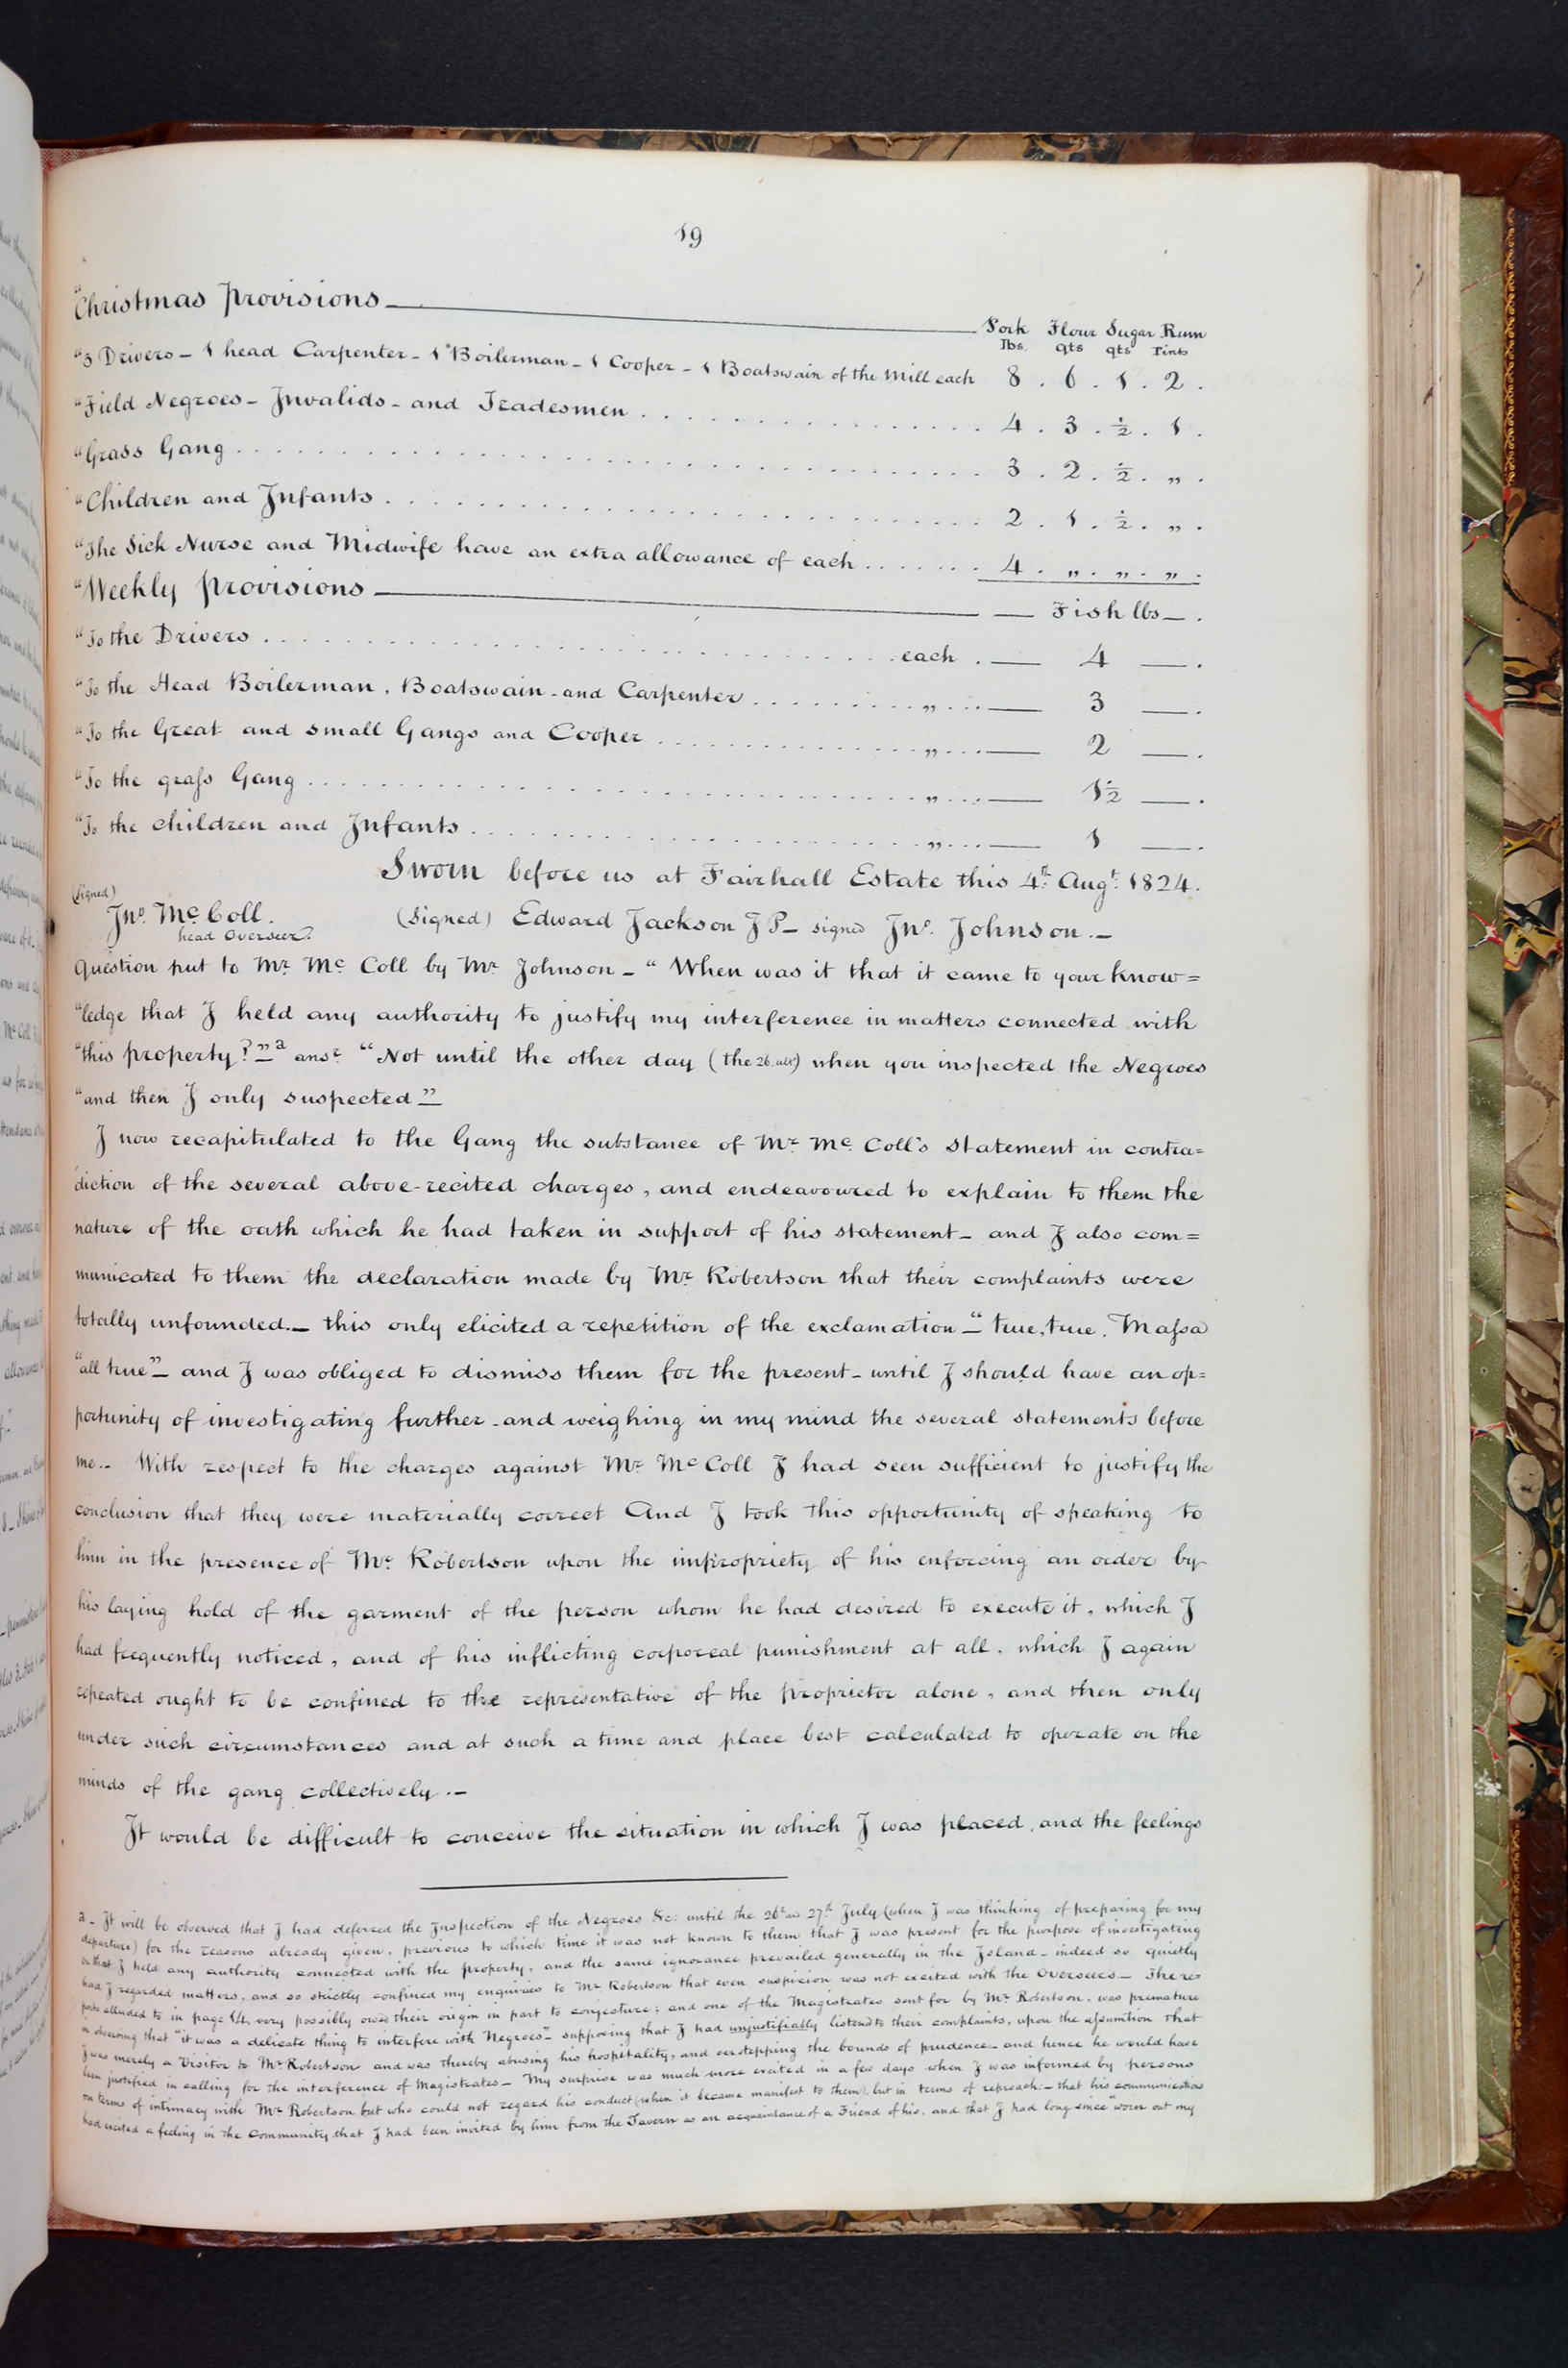 19
"Christmas provisions — Pork Flour Sugar Rum
lbs. qts qts Pints
"3 Drivers - 1 head Carpenter - 1 Boilerman - 1 Cooper - 1 Boatswain of the Mill each 8 . 6 . 1 . 2 .
"Field Negroes - Invalids - and Tradesmen . . . 4 . 3 . ½ . 1 .
"Grass Gang . . . 3 . 2 . ½ . „ .
"Children and Infants . . . 2 . 1 . ½ . „ .
"The Sick Nurse and Midwife have an extra allowance of each . . . 4 . „ . „ . „ .
"Weekly provisions — — Fish lbs — .
"To the Drivers . . . each . — 4 — .
"To the Head Boilerman, Boatswain - and Carpenter . . . „ . . . — 3 — .
"To the Great and small Gangs and Cooper . . . „ . . . — 2 — .
"To the grass Gang . . . „ . . . — 1½ — .
"To the children and Infants . . . „ . . . — 1 — .
Sworn before us at Fairhall Estate this 4th. Augt. 1824.
(signed)
Jno. McColl. (Signed) Edward Jackson JP — signed Jno. Johnson. —
head Overseer.
Question put to Mr. Mc Coll by Mr. Johnson - "When was it that it came to your know=
"ledge that I held any authority to justify my interference in matters connected with
"this property?" a ansr. "Not until the other day (the 26. ult) when you inspected the Negroes
"and then I only suspected"
I now recapitulated to the Gang the substance of Mr. Mc. Coll's statement in contra=
diction of the several above-recited charges, and endeavoured to explain to them the
nature of the oath which he had taken in support of his statement - and I also com=
municated to them the declaration made by Mr. Robertson that their complaints were
totally unfounded. — this only elicited a repetition of the exclamation — "true, true, Massa
"all true" — and I was obliged to dismiss them for the present - until I should have an op=
portunity of investigating further - and weighing in my mind the several statements before
me. - With respect to the charges against Mr. McColl I had seen sufficient to justify the
conclusion that they were materially correct And I took this opportunity of speaking to
him in the presence of Mr. Robertson upon the impropriety of his enforcing an order by
his laying hold of the garment of the person whom he had desired to execute it, which I
had frequently noticed, and of his inflicting corporeal punishment at all, which I again
repeated ought to be confined to the representative of the proprietor alone, and then only
under such circumstances and at such a time and place best calculated to operate on the
minds of the gang collectively. -
It would be difficult to conceive the situation in which I was placed, and the feelings
a - It will be observed that I had deferred the Inspection of the Negroes &c: until the 26th and 27th July (when I was thinking of preparing for my
departure) for the reasons already given, previous to which time it was not known to them that I was present for the purpose of investigating
or that I held any authority connected with the property, and the same ignorance prevailed generally in the Island - indeed so quietly
had I regarded matters, and so strictly confined my enquiries to Mr. Robertson that even suspicion was not excited with the Overseers - The re=
ports alluded to in page 14, very possibly owed their origin in part to conjecture; and one of the Magistrates sent for by Mr. Robertson, was premature
in observing that "it was a delicate thing to interfere with Negroes" - supposing that I had unjustifiably listend to their complaints, upon the assumtion that
I was merely a Visitor to Mr. Robertson and was thereby abusing his hospitality, and overstepping the bounds of prudence - and hence he would have
been justified in calling for the interference of Magistrates - My surprise was much more excited in a few days when I was informed by persons
on terms of intimacy with Mr. Robertson but who could not regard his conduct (when it became manifest to them), but in terms of reproach: - that his communications
had excited a feeling in the Community that I had been invited by him from the Tavern as an acquaintance of a Friend of his, and that I had long since "worn out my